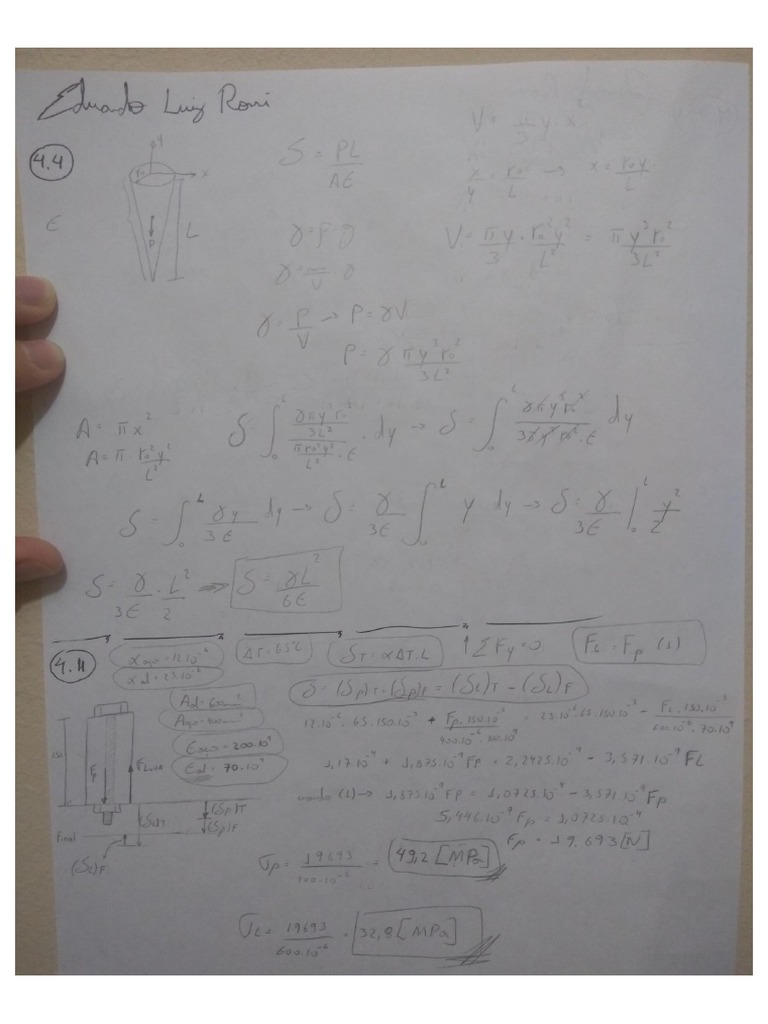 Eduardo Luiz Rossi
4.4
y
r₀
x
L
P
E
δ = PL/AE
V = π/3 y · x²
x/y = r₀/L → x = r₀y/L
γ = ρ · g
V = πy/3 · r₀²y²/L² = πy³r₀²/3L²
γ = m/V g
γ = P/V → P = γV
P = γ πy³r₀²/3L²
A = πx²
A = π · r₀²y²/L²
δ = ∫₀ᴸ (γπy³r₀²/3L²)/(πr₀²y²/L² · E) · dy → δ = ∫₀ᴸ γπy³r₀²/3πy²r₀²·E dy
δ = ∫₀ᴸ γy/3E dy → δ = γ/3E ∫₀ᴸ y dy → δ = γ/3E |₀ᴸ y²/2
δ = γ/3E · L²/2 → δ = γL²/6E
4.11
αaço = 12.10⁻⁶
αal = 23.10⁻⁶
ΔT = 65°C
δT = αΔT.L
↑ΣFy = 0
FL = Fp (1)
δ = (δp)T + (δp)F = (δL)T − (δL)F
Aal = 600mm²
Aaço = 400mm²
Eaço = 200.10⁹
Eal = 70.10⁹
150
Fp
FLuva
(δL)T
(δp)T
(δp)F
final
(δL)F
12.10⁻⁶.65.150.10⁻³ + Fp.150.10⁻³/400.10⁻⁶.200.10⁹ = 23.10⁻⁶.65.150.10⁻³ − FL.150.10⁻³/600.10⁻⁶.70.10⁹
1,17.10⁻⁴ + 1,875.10⁻⁹ Fp = 2,2425.10⁻⁴ − 3,571.10⁻⁹ FL
usando (1) → 1,875.10⁻⁹ Fp = 1,0725.10⁻⁴ − 3,571.10⁻⁹ Fp
5,446.10⁻⁹ Fp = 1,0725.10⁻⁴
Fp = 19.693 [N]
σp = 19693/400.10⁻⁶ = 49,2 [MPa]
σL = 19693/600.10⁻⁶ = 32,8 [MPa]